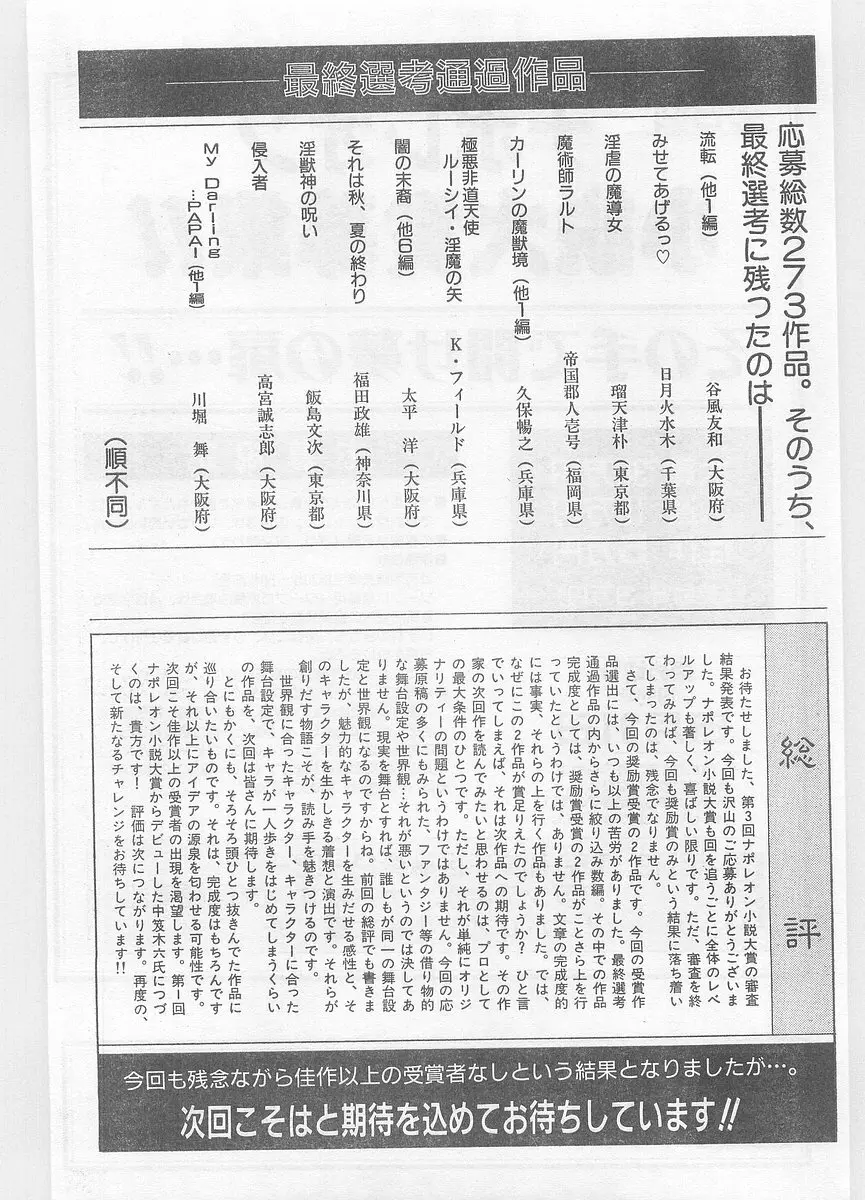 最終選考通過作品
応募総数273作品。そのうち、
最終選考に残ったのは――
流転（他1編）　谷風友和（大阪府）
みせてあげるっ♡　日月火水木（千葉県）
淫虐の魔導女　瑠天津朴（東京都）
魔術師ラルト　帝国郡人壱号（福岡県）
カーリンの魔獣境（他1編）　久保暢之（兵庫県）
極悪非道天使
ルーシイ・淫魔の矢　K・フィールド（兵庫県）
闇の末裔（他6編）　太平　洋（大阪府）
それは秋、夏の終わり　福田政雄（神奈川県）
淫獣神の呪い　飯島文次（東京都）
侵入者　高宮誠志郎（大阪府）
My Darling
…PAPA！（他1編）　川堀　舞（大阪府）
（順不同）
総評
お待たせしました、第3回ナポレオン小説大賞の審査
結果発表です。今回も沢山のご応募ありがとうございま
した。ナポレオン小説大賞も回を追うごとに全体のレベ
ルアップも著しく、喜ばしい限りです。ただ、審査を終
わってみれば、今回も奨励賞のみという結果に落ち着い
てしまったのは、残念でなりません。
さて、今回の奨励賞受賞の2作品です。今回の受賞作
品選出には、いつも以上の苦労がありました。最終選考
通過作品の内からさらに絞り込み数編。その中での作品
完成度としては、奨励賞受賞の2作品がことさら上を行
っていたというわけでは、ありません。文章の完成度的
には事実、それらの上を行く作品もありました。では、
なぜにこの2作品が賞足りえたのでしょうか？　ひと言
でいってしまえば、それは次作品への期待です。その作
家の次回作を読んでみたいと思わせるのは、プロとして
の最大条件のひとつです。ただし、それが単純にオリジ
ナリティーの問題というわけではありません。今回の応
募原稿の多くにもみられた、ファンタジー等の借り物的
な舞台設定や世界観…それが悪いというのでは決してあ
りません。現実を舞台とすれば、誰しもが同一の舞台設
定と世界観になるのですからね。前回の総評でも書きま
したが、魅力的なキャラクターを生みだせる感性と、そ
のキャラクターを生かしきる着想と演出です。それらが
創りだす物語こそが、読み手を魅きつけるのです。
世界観に合ったキャラクター、キャラクターに合った
舞台設定で、キャラが一人歩きをはじめてしまうくらい
の作品を、次回は皆さんに期待します。
とにもかくにも、そろそろ頭ひとつ抜きんでた作品に
巡り合いたいものです。それは、完成度はもちろんです
が、それ以上にアイデアの源泉を匂わせる可能性です。
次回こそ佳作以上の受賞者の出現を渇望します。第1回
ナポレオン小説大賞からデビューした中笈木六氏につづ
くのは、貴方です！　評価は次につながります。再度の、
そして新たなるチャレンジをお待ちしています!!
今回も残念ながら佳作以上の受賞者なしという結果となりましたが…。
次回こそはと期待を込めてお待ちしています!!